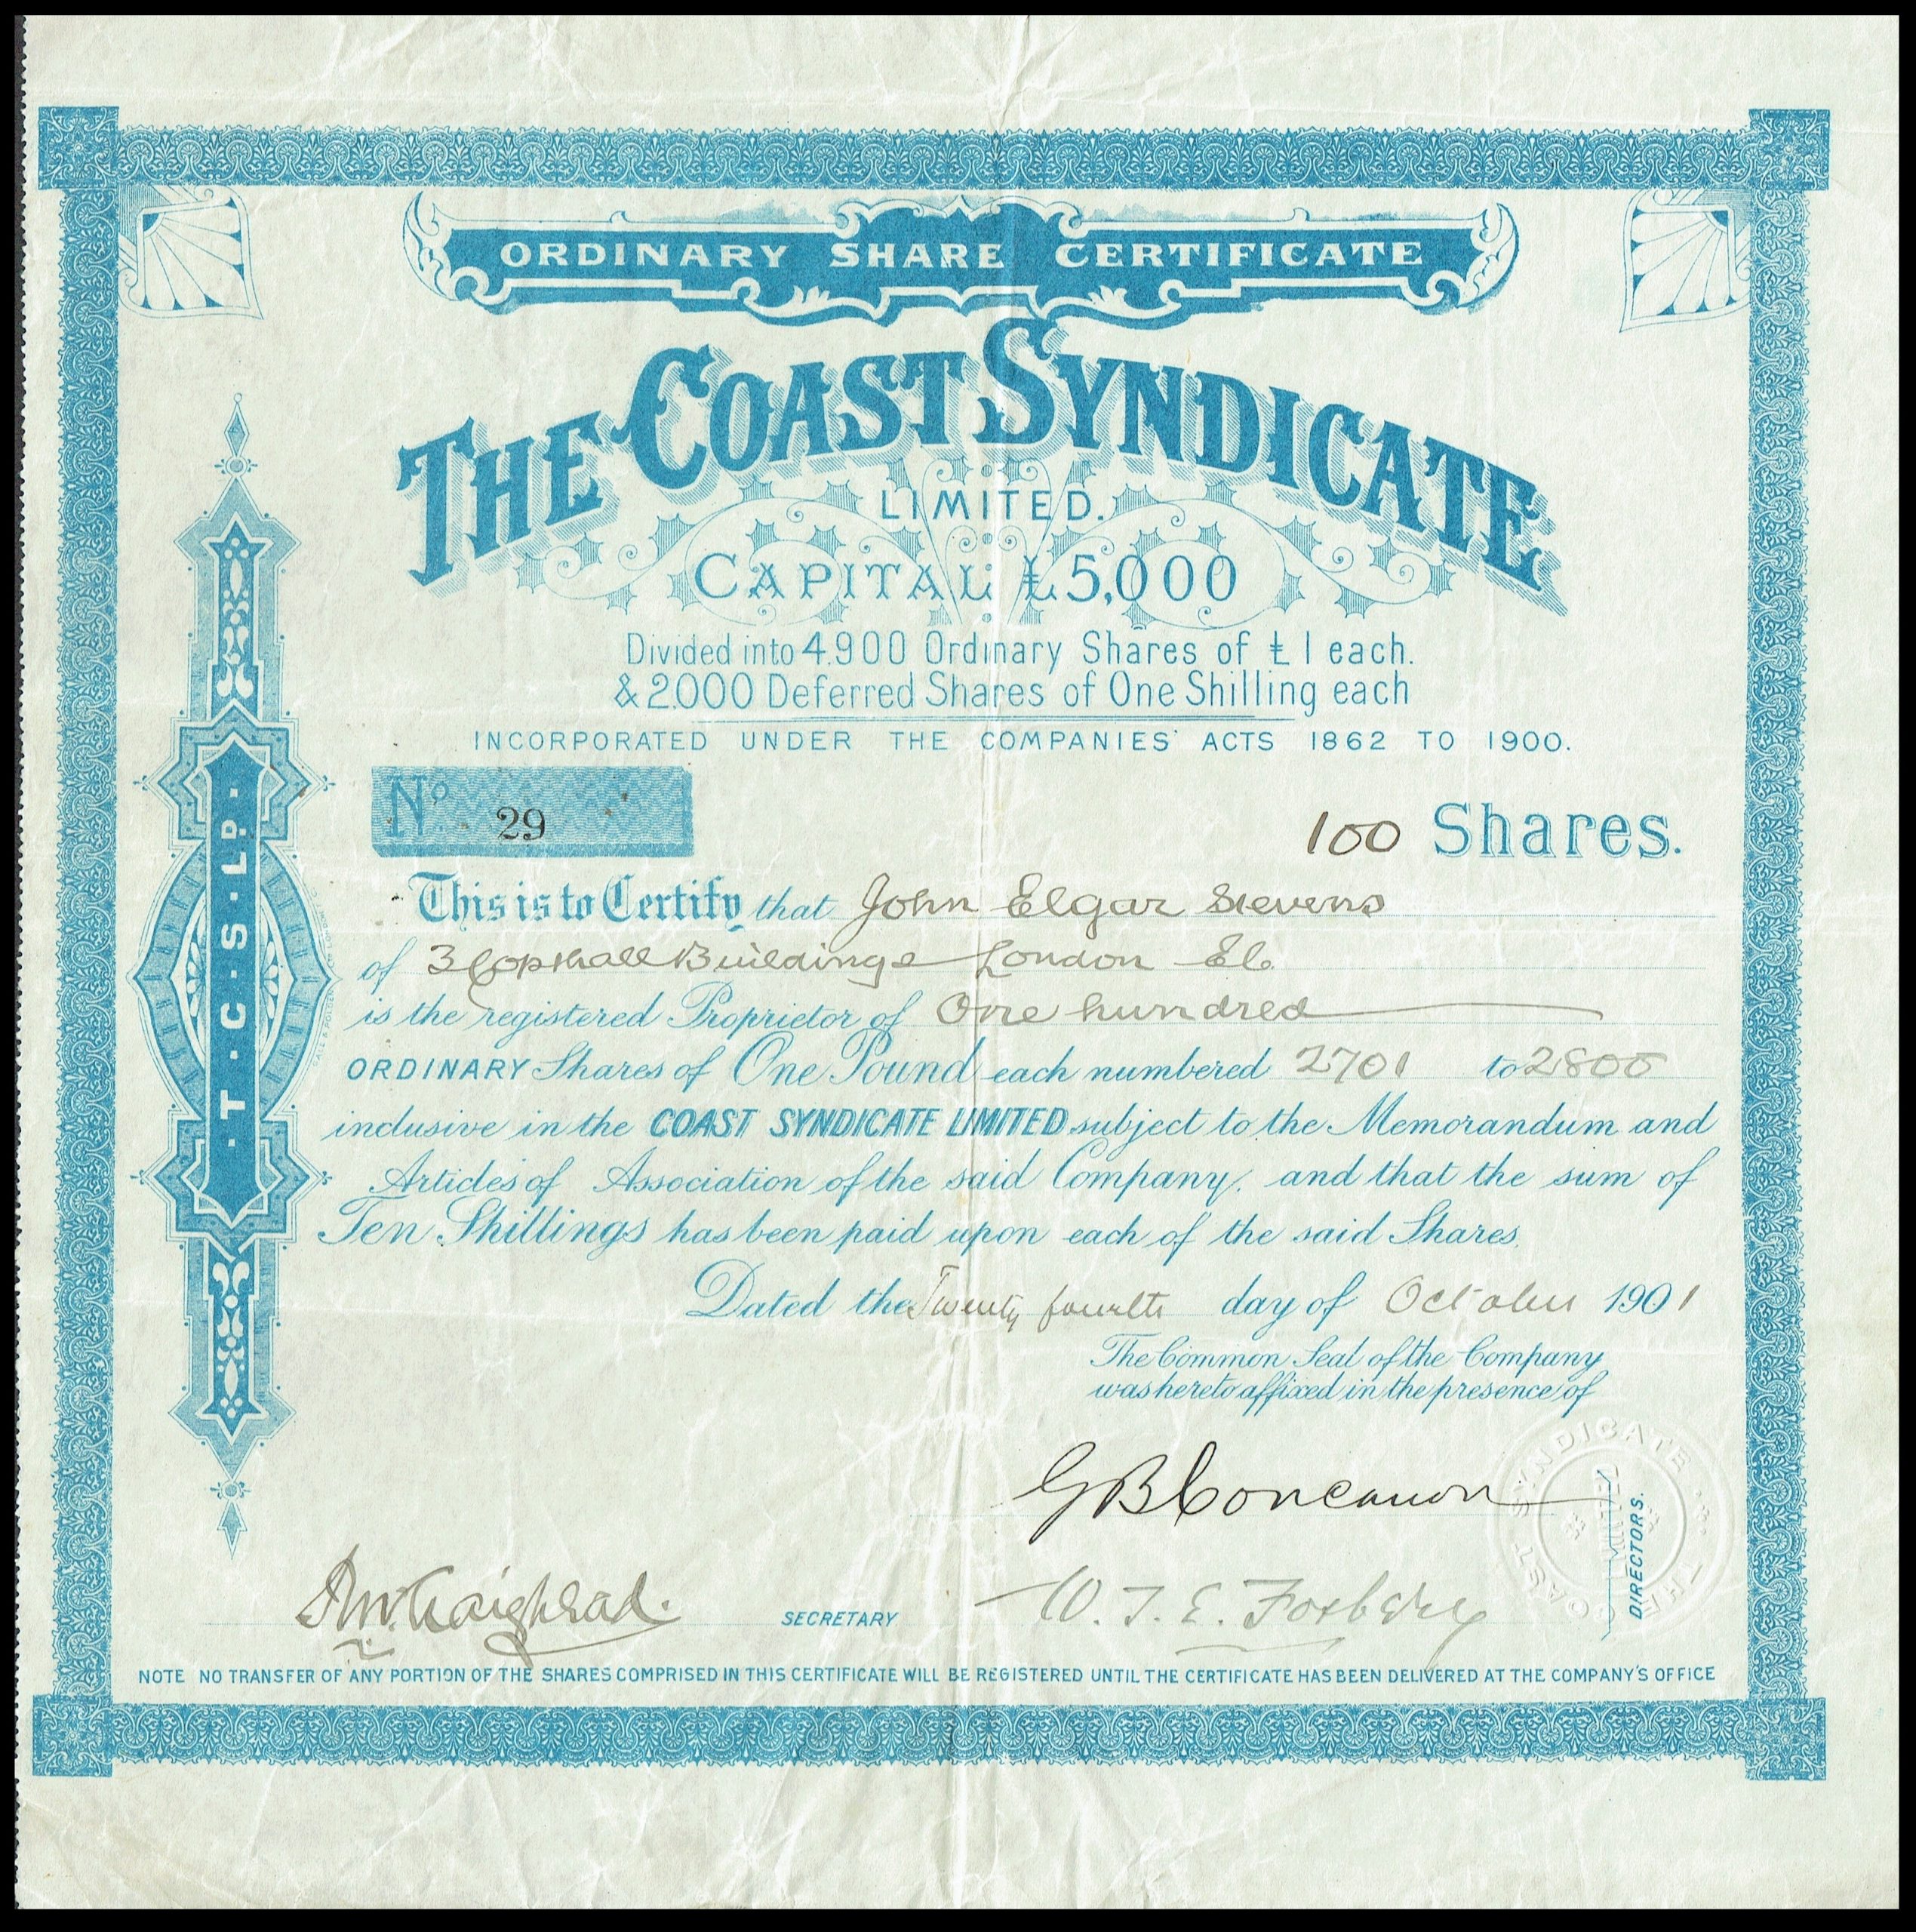 ORDINARY SHARE CERTIFICATE
THE COAST SYNDICATE
LIMITED.
CAPITAL £5,000
Divided into 4.900 Ordinary Shares of £1 each.
& 2.000 Deferred Shares of One Shilling each
INCORPORATED UNDER THE COMPANIES' ACTS 1862 TO 1900.
No. 29
100 Shares.
This is to Certify that John Elgar Stevens
of 3 Copthall Buildings London EC.
is the registered Proprietor of One hundred
ORDINARY Shares of One Pound each numbered 2701 to 2800
inclusive in the COAST SYNDICATE LIMITED subject to the Memorandum and
Articles of Association of the said Company, and that the sum of
Ten Shillings has been paid upon each of the said Shares.
Dated the Twenty fourth day of October 1901
The Common Seal of the Company
was hereto affixed in the presence of
G B Concanon
DIRECTORS.
W. T. E. Foxbery
SECRETARY
NOTE NO TRANSFER OF ANY PORTION OF THE SHARES COMPRISED IN THIS CERTIFICATE WILL BE REGISTERED UNTIL THE CERTIFICATE HAS BEEN DELIVERED AT THE COMPANY'S OFFICE
· T · C · S · LD ·
THE COAST SYNDICATE
LIMITED